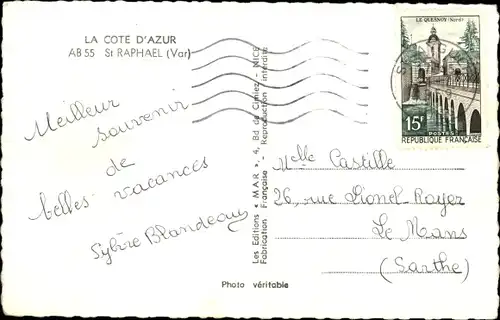 LA COTE D'AZUR
AB 55 St RAPHAEL (Var)
Meilleur
souvenir
de
belles vacances
Sylvie Blandeau
Les Editions « M A R », 4, Bd de Cimiez - NICE
Fabrication Française - Reproduction interdite
Photo véritable
LE QUESNOY (Nord)
15F
POSTES
REPUBLIQUE FRANÇAISE
Melle Castille
26, rue Lionel-Royer
Le Mans
(Sarthe)